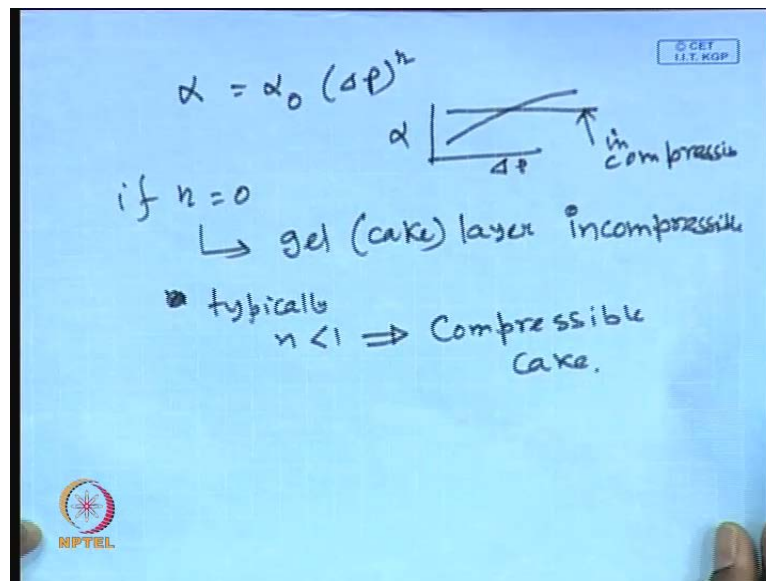 © CET
I.I.T. KGP
α = α₀ (ΔP)ⁿ
α
ΔP
in
compressib
if n = 0
↳ gel (cake) layer incompressible
typically
n < 1 ⇒ Compressible
Cake.
NPTEL